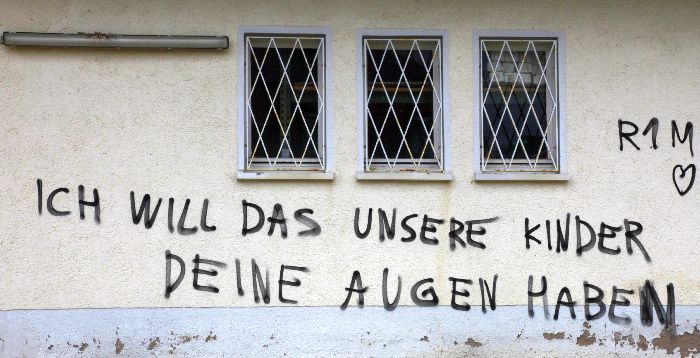 R1M
♡
ICH WILL DAS UNSERE KINDER
DEINE AUGEN HABEN